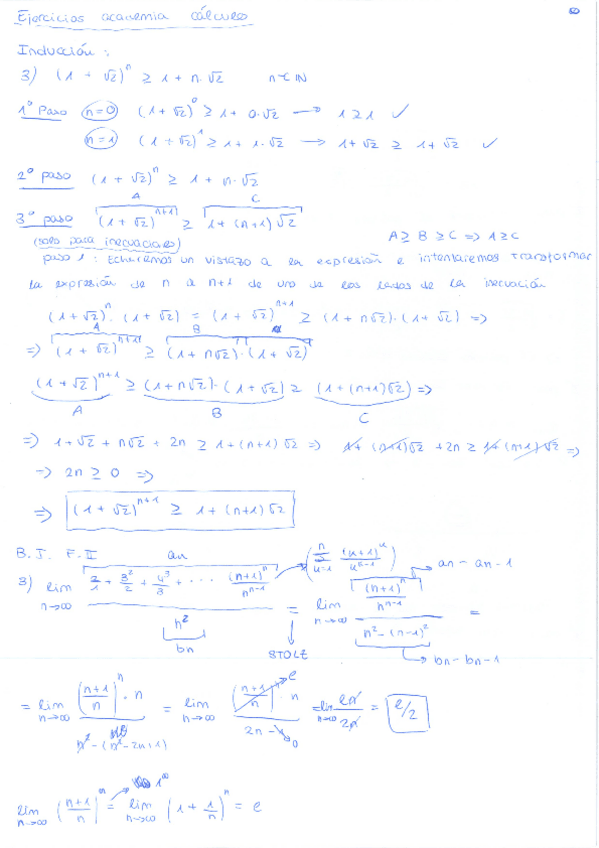 Ejercicios academia cálculo
Inducción:
3) (1 + √2)^n ≥ 1 + n·√2 n ∈ IN
1º Paso n=0 (1+√2)^0 ≥ 1+ 0·√2 → 1 ≥ 1 ✓
n=1 (1+√2)^1 ≥ 1+ 1·√2 → 1+√2 ≥ 1+√2 ✓
2º paso (1 + √2)^n ≥ 1 + n·√2
A C
3º paso (1+√2)^(n+1) ≥ 1 + (n+1)√2
(solo para inecuaciones) A ≥ B ≥ C => A ≥ C
paso 1: Echaremos un vistazo a la expresión e intentaremos transformar
la expresión de n a n+1 de uno de los lados de la inecuación
(1+√2)^n · (1+√2) = (1+√2)^(n+1) ≥ (1+n√2)·(1+√2) =>
A B
=> (1+√2)^(n+1) ≥ (1+n√2)·(1+√2)
(1+√2)^(n+1) ≥ (1+n√2)·(1+√2) ≥ (1+(n+1)√2) =>
A B C
=> 1+√2 + n√2 + 2n ≥ 1+(n+1)√2 => 1+(n+1)√2 +2n ≥ 1+(n+1)√2 =>
→ 2n ≥ 0 =>
=> (1+√2)^(n+1) ≥ 1+(n+1)√2
B.I. F.II an
3) lim n→∞ (2/1 + 3²/2 + 4³/3 + ··· (n+1)^n/n^(n-1)) / n² = lim n→∞ ((n+1)^n/n^(n-1)) / (n²-(n-1)²) =
an - an-1
bn
STOLZ
bn - bn-1
= lim n→∞ ((n+1)/n)^n · n / (n²-(n²-2n+1)) = lim n→∞ ((n+1)/n)^n · n / (2n-1) = lim n→∞ en/2n = e/2
e
0
1^∞
lim n→∞ ((n+1)/n)^n = lim n→∞ (1 + 1/n)^n = e